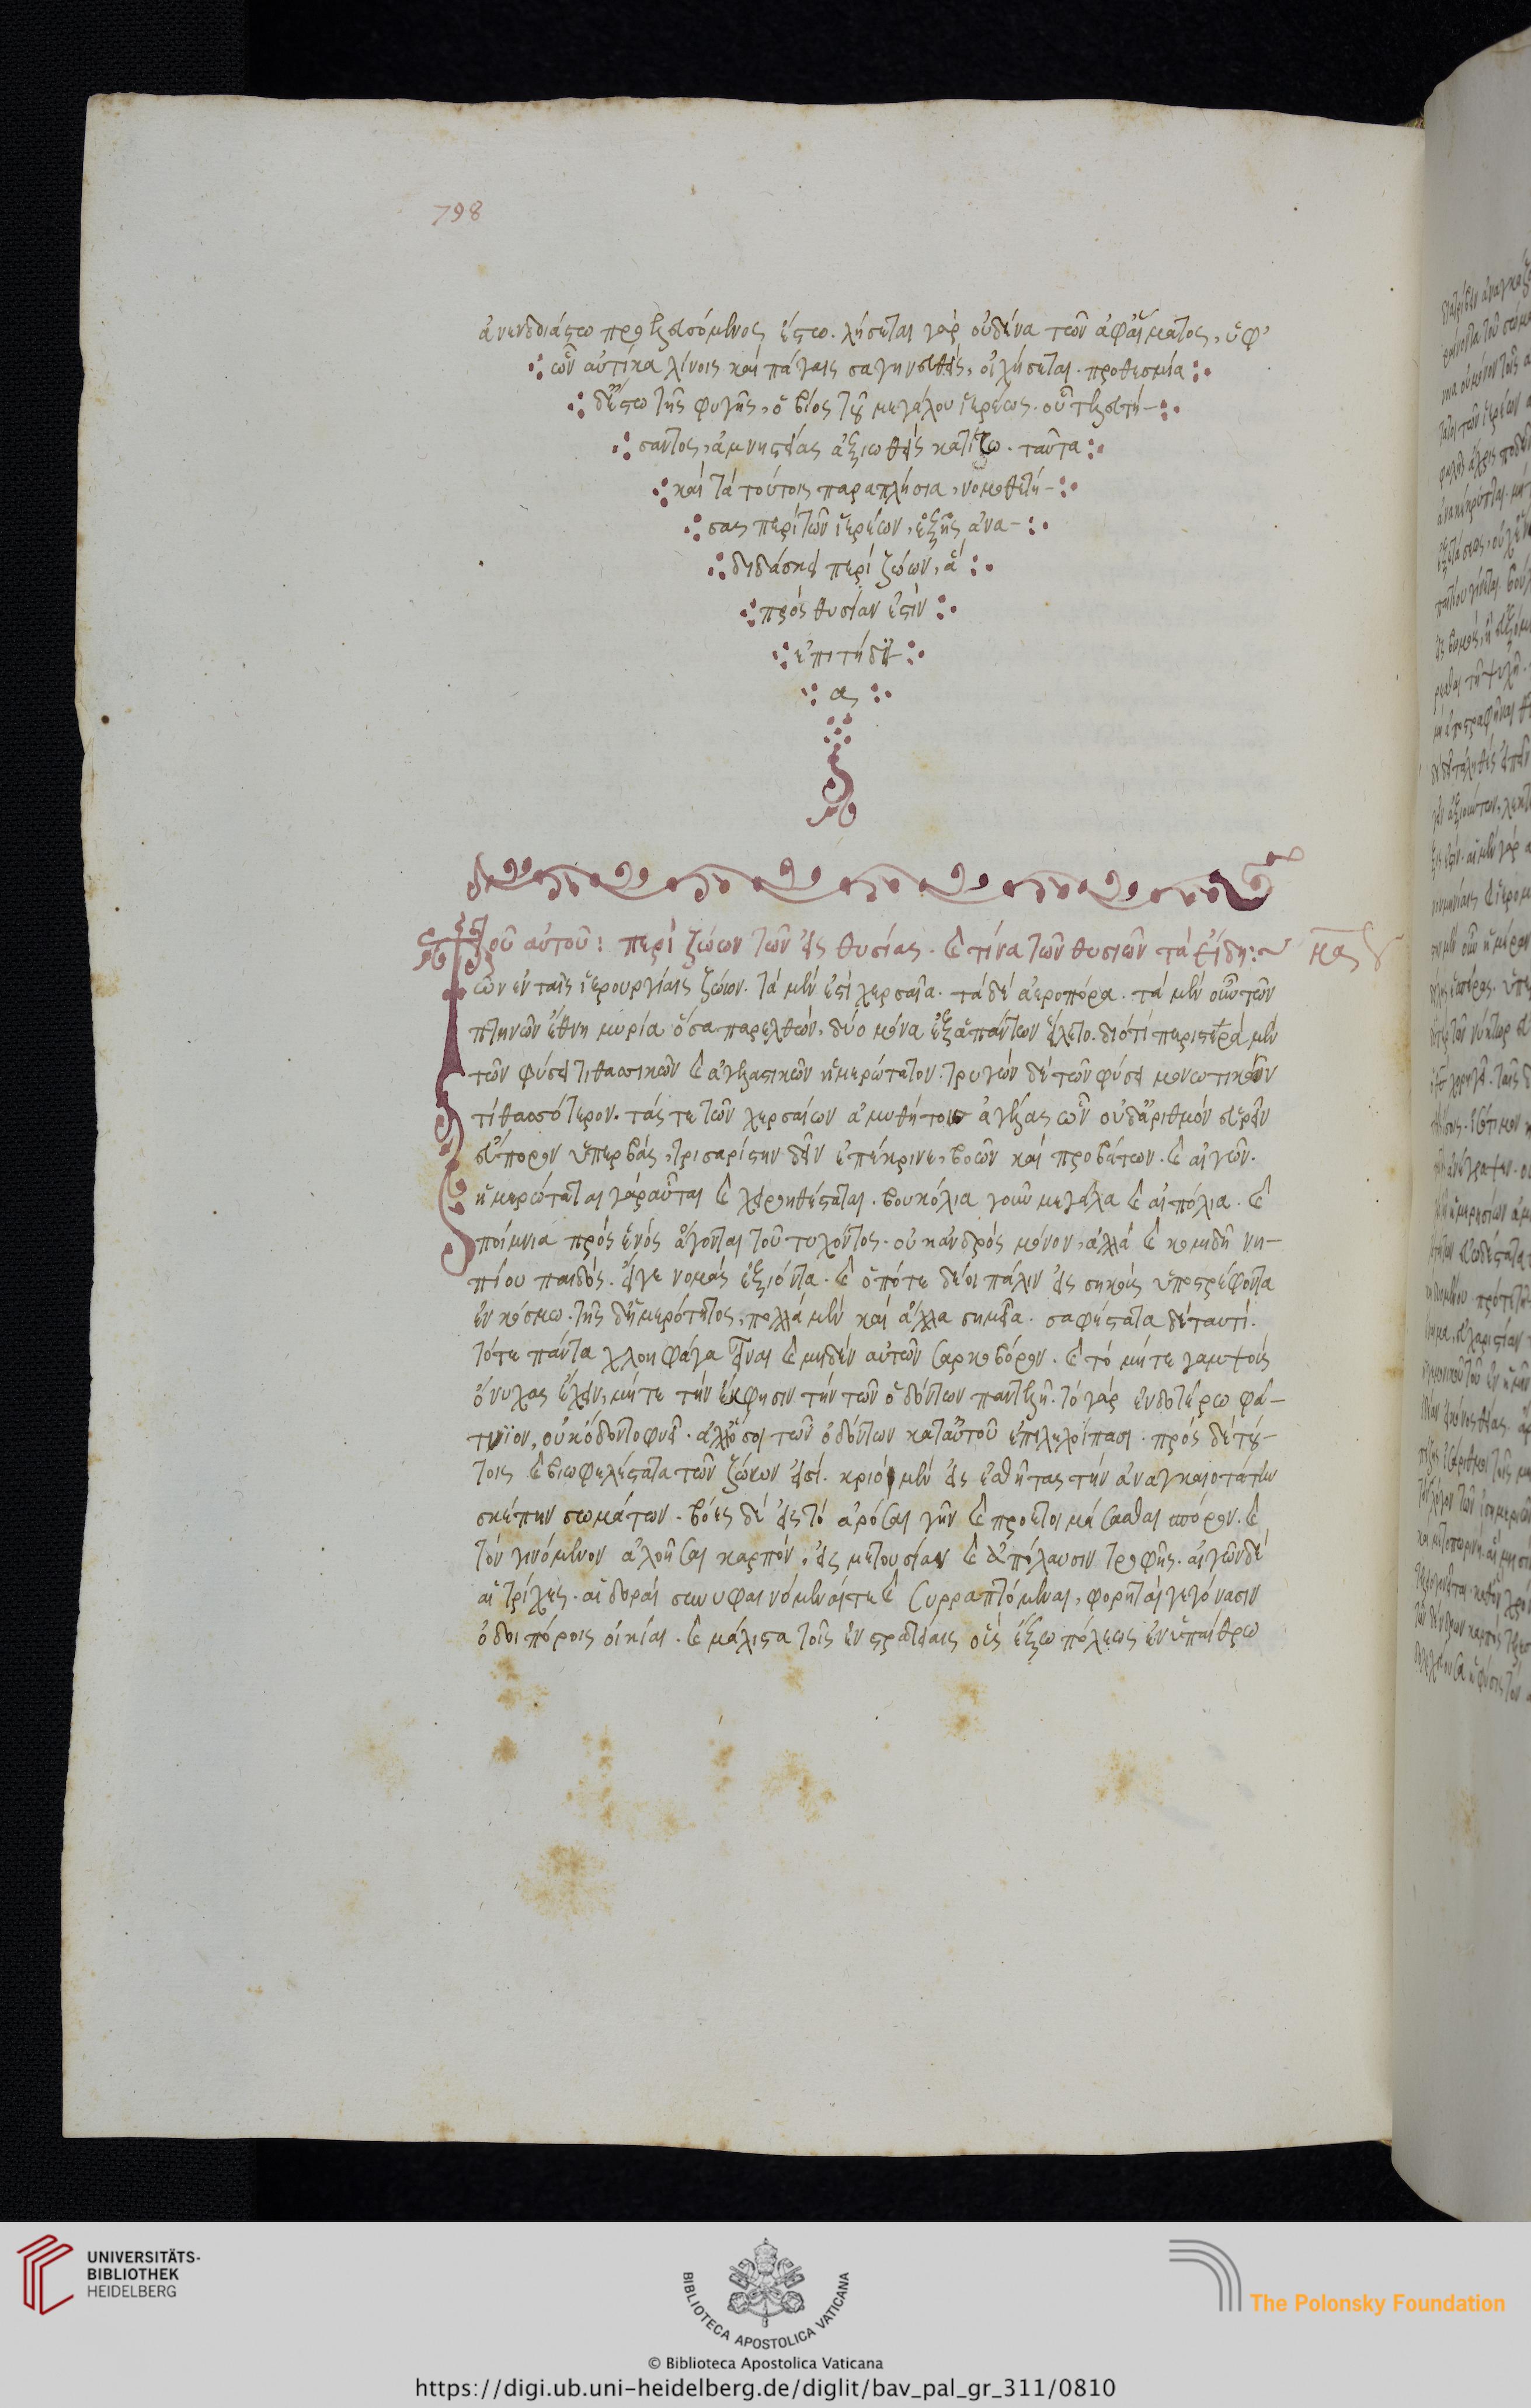 798
ἀνενδοιάστως προελευσόμενος ἔστω. λήσεται γὰρ οὐδένα τῶν ἀφ' αἵματος, ὑφ'
ὧν αὐτίκα λίνοις καὶ πάγαις σαγηνευθεὶς, οἰχήσεται. προθεσμία
δ' ἔστω τῆς φυγῆς, ὁ βίος τοῦ μεγάλου ἱερέως. οὗ τελευτή-
σαντος, ἀμνηστίας ἀξιωθεὶς κατίτω. ταῦτα
καὶ τὰ τούτοις παραπλήσια, νομοθετή-
σας περὶ τῶν ἱερέων, ἑξῆς ἀνα-
διδάσκει περὶ ζώων, ἃ
πρὸς θυσίαν ἐστὶν
ἐπιτήδει-
α
Τοῦ αὐτοῦ: περὶ ζώων τῶν εἰς θυσίας. καὶ τίνα τῶν θυσιῶν τὰ εἴδη:~
μα
Τῶν ἐν ταῖς ἱερουργίαις ζώων. τὰ μὲν ἐστὶ χερσαῖα. τὰ δὲ ἀεροπόρα. τὰ μὲν οὖν τῶν
πτηνῶν ἔθνη μυρία ὅσα παρελθὼν, δύο μόνα ἐξ ἁπάντων εἵλετο. διότι περιστερὰ μὲν
τῶν φύσει τιθασσικῶν καὶ ἀγελαστικῶν ἡμερώτατον. τρυγὼν δὲ τῶν φύσει μονωτικῶν
τιθασσότερον. τάς τε τῶν χερσαίων ἀμυθήτους ἀγέλας ὧν οὐδ' ἀριθμὸν εὑρεῖν
εὔπορον ὑπερβὰς, τρισαρίστην δὲν ἐπέκρινε, βοῶν καὶ προβάτων. καὶ αἰγῶν.
ἡμερώταται γὰρ αὗται καὶ χειροηθέσταται. βουκόλια γοῦν μεγάλα καὶ αἰπόλια. καὶ
ποίμνια πρὸς ἑνὸς ἄγονται τοῦ τυχόντος. οὐκ ἀνδρὸς μόνον, ἀλλὰ καὶ κομιδῆ νη-
πίου παιδός. εἴς γε νομὰς ἐξιόντα. καὶ ὁπότε δέοι πάλιν εἰς σηκοὺς ὑποστρέφοντα
ἐν κόσμω. τῆς δ' ἡμερότητος, πολλὰ μὲν καὶ ἄλλα σημεῖα. σαφέστατα δὲ ταυτί.
τό τε πάντα χλοηφάγα εἶναι καὶ μηδὲν αὐτῶν σαρκοβόρον. καὶ τὸ μήτε γαμψοὺς
ὄνυχας ἔχειν, μήτε τὴν ἔκφησιν τὴν τῶν ὀδόντων παντελῆ. τὸ γὰρ ἐνδοτέρω φά-
τνϊον, οὐκ ὀδοντοφυεῖ. ἀλλ' ὅσοι τῶν ὀδόντων κατ' αὐτοῦ ἐπιλελοίπασι. πρὸς δὲ τού-
τοις καὶ βιωφελέστατα τῶν ζώων εἰσί. κριοὶ μὲν εἰς ἐσθῆτας τὴν ἀναγκαιοτάτην
σκέπην σωμάτων. βόες δὲ εἰς τὸ ἀρόσαι γῆν καὶ προετοιμάσασθαι σπόρον. καὶ
τὸν γινόμενον ἀλοῆσαι καρπὸν, εἰς μετουσίαν καὶ ἀπόλαυσιν τροφῆς. αἰγῶν δὲ
αἱ τρίχες. αἱ δοραὶ συνυφαινόμεναί τε καὶ συρραπτόμεναι, φορηταὶ γεγόνασιν
ὁδοιπόροις οἰκίαι. καὶ μάλιστα τοῖς ἐν στρατείαις οὓς ἔξω πόλεως ἐν ὑπαίθρω
UNIVERSITÄTS-
BIBLIOTHEK
HEIDELBERG
BIBLIOTECA APOSTOLICA VATICANA
The Polonsky Foundation
© Biblioteca Apostolica Vaticana
https://digi.ub.uni-heidelberg.de/diglit/bav_pal_gr_311/0810